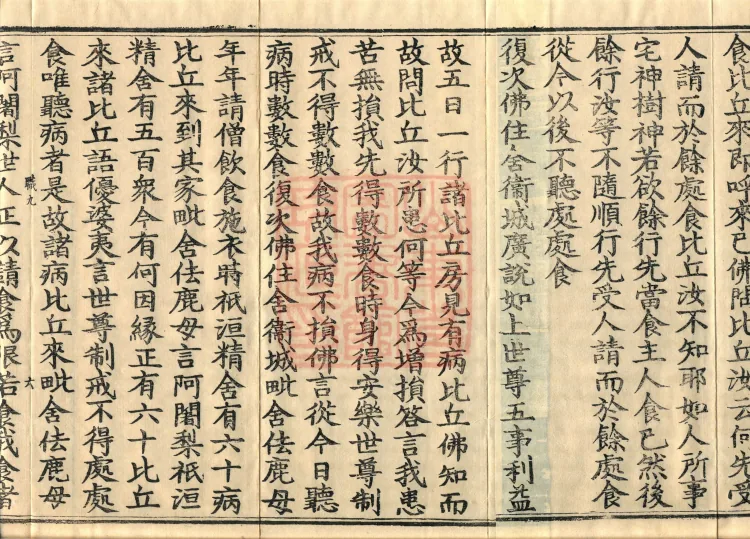 食比丘來即呼來已佛問比丘汝云何先受
人請而於餘處食比丘汝不知耶如人所事
宅神樹神若欲餘行先當食主人食已然後
餘行汝等不隨順行先受人請而於餘處食
從今以後不聽處處食
復次佛住舍衛城廣說如上世尊五事利益
故五日一行諸比丘房見有病比丘佛知而
故問比丘汝所患何等今為增損答言我患
苦無損我先得數數食時身得安樂世尊制
戒不得數數食故我病不損佛言從今日聽
病時數數食復次佛住舍衛城毗舍佉鹿母
年年請僧飲食施衣時祇洹精舍有六十病
比丘來到其家毗舍佉鹿母言阿闍梨祇洹
精舍有五百衆今有何因緣正有六十比丘
來諸比丘語優婆夷言世尊制戒不得處處
食唯聽病者是故諸病比丘來毗舍佉鹿母
職九
六
言阿闍梨世人正以請食為限若食我食者